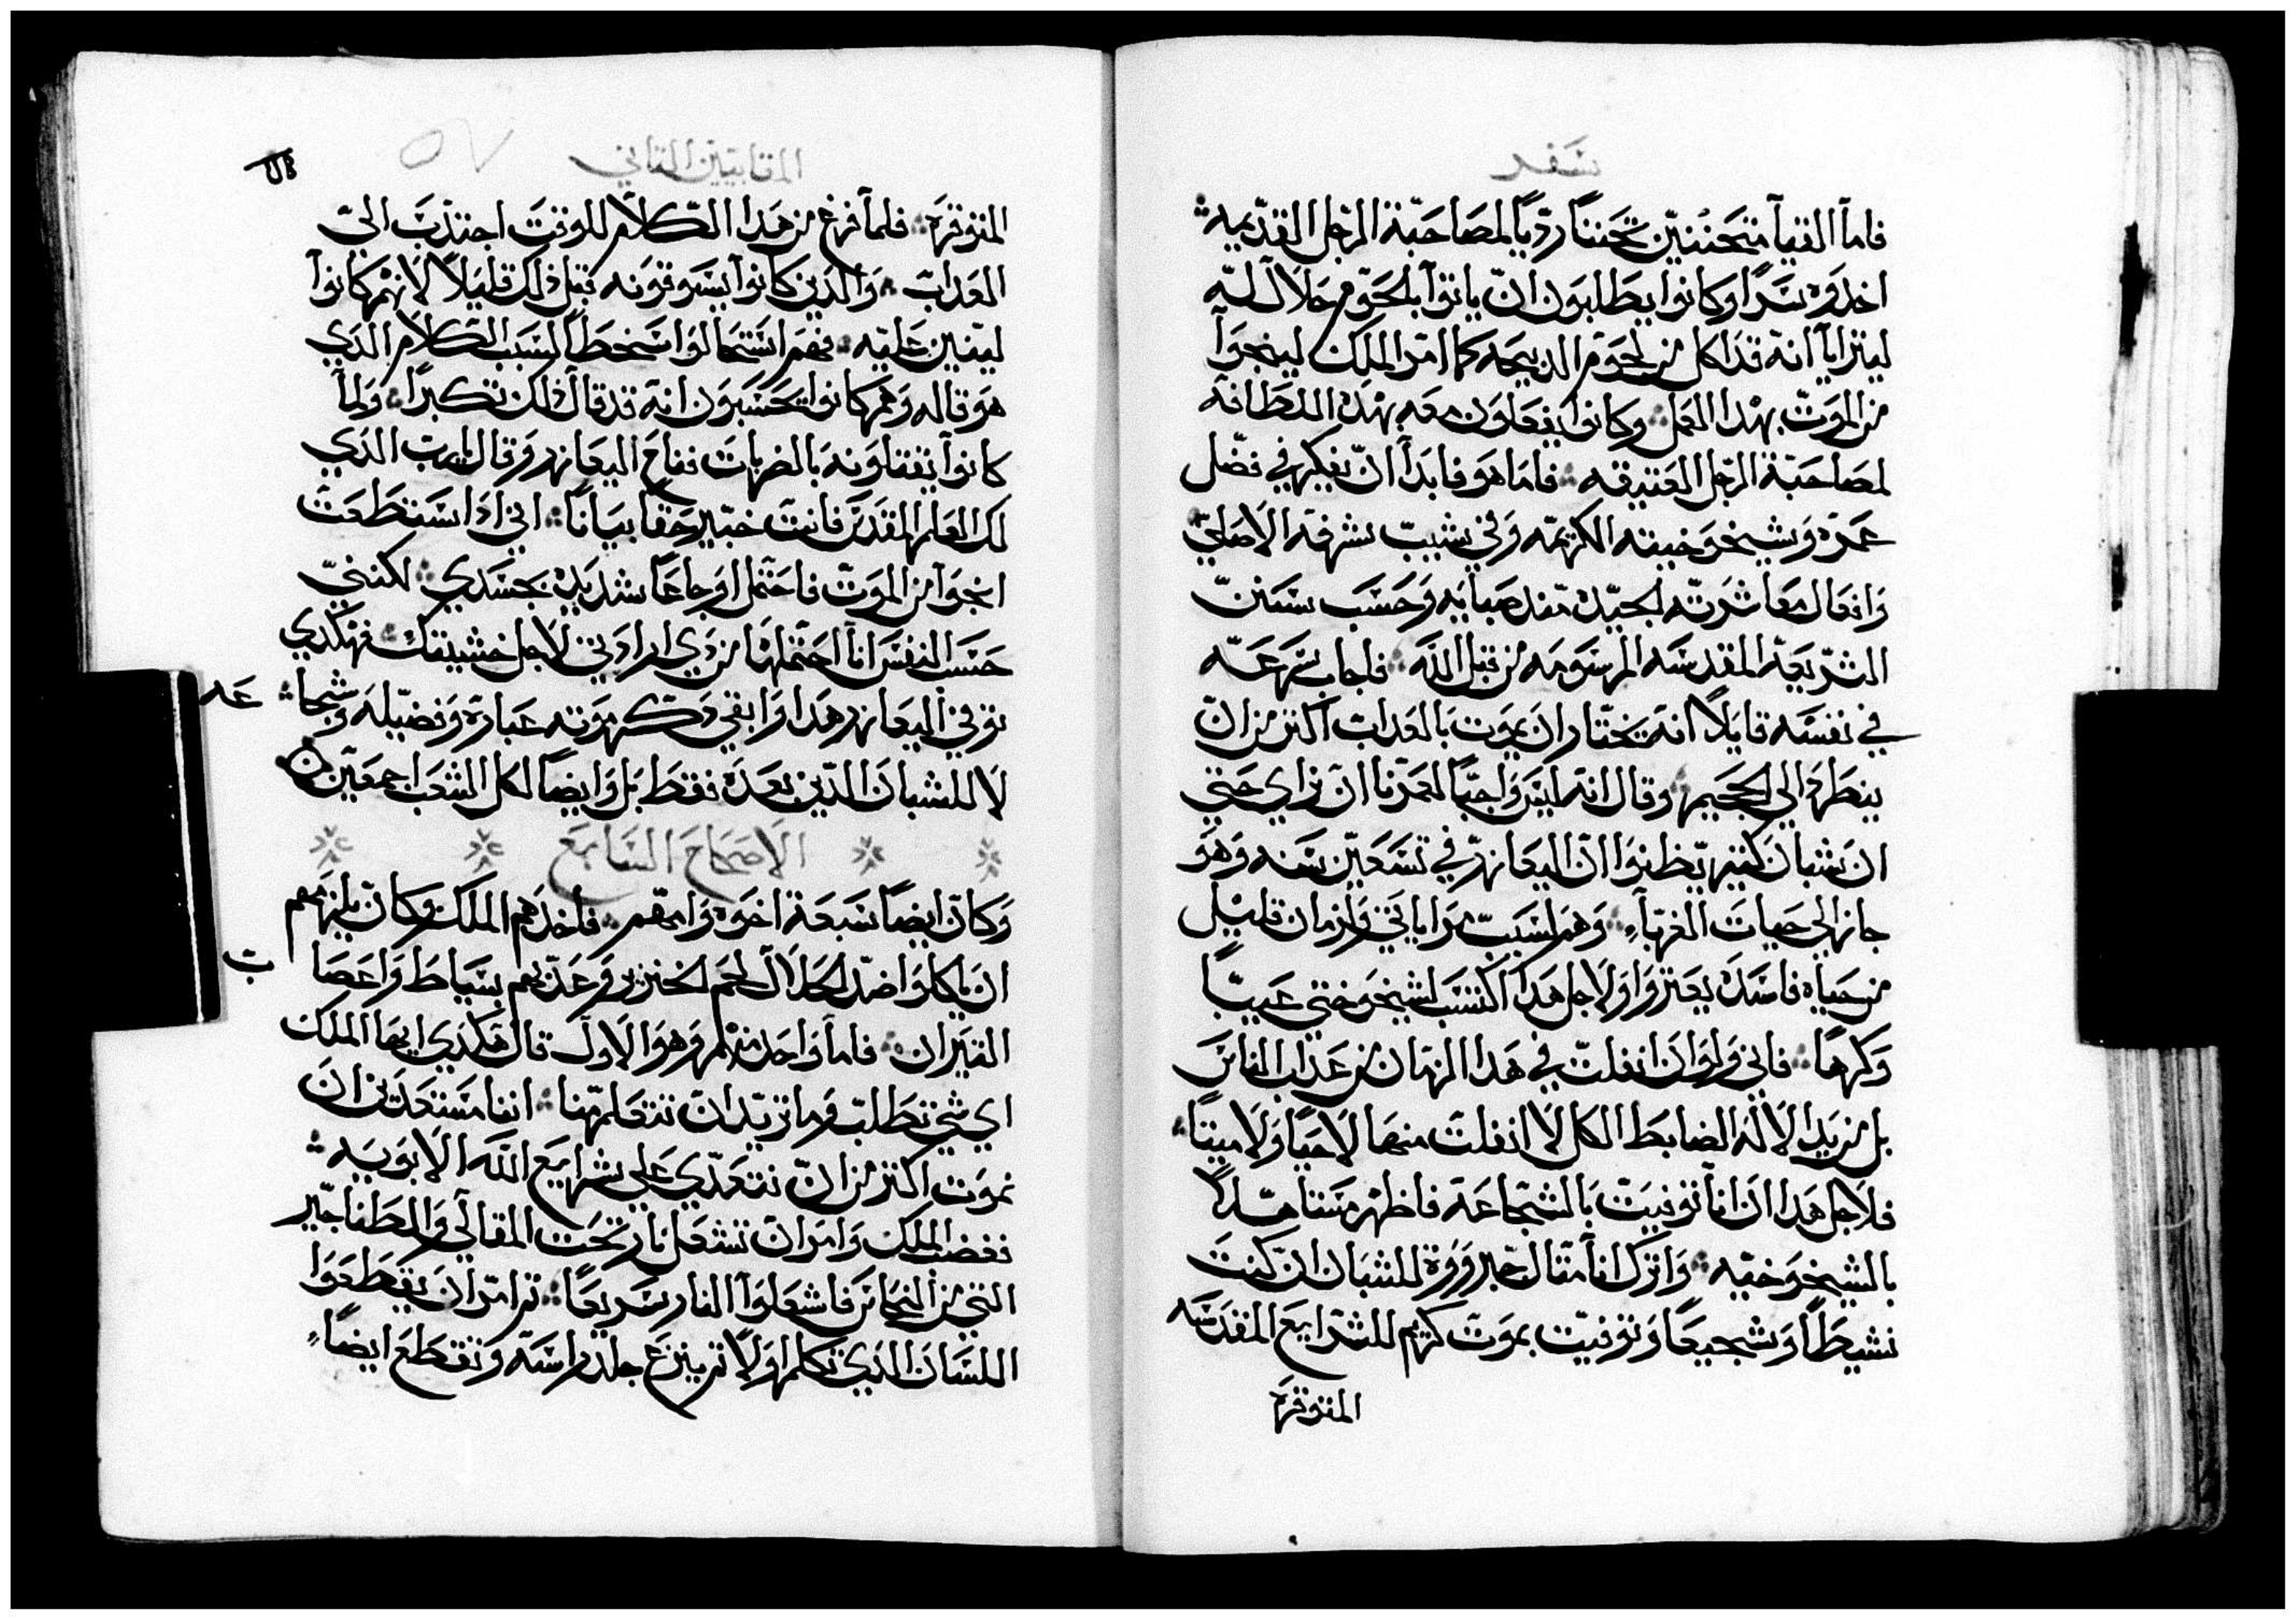 سفر
فاما القيام متحننين تحننا رديا لمصاحبة الرجل القديمه
اخدوه سرا وكانوا يطلبون ان ياتوا بلحوم حلال له
ليترايا انه قد اكل من لحوم الدبيحه كما امر الملك لينجوا
من الموت بهدا العمل وكانوا يفعلون معه بهده اللطافه
لمصاحبة الرجل العتيقه فاما هو فابدا ان يفكر في فضل
عمره وشيخوخيته الكريمه وفي شيب شرفه الاصلي
وافعال معاشرته الجيده مند صبايه وحسب سنن
الشريعه المقدسه المرسومه من قبل الله فاجاب سرعه
في نفسه قايلا انه يختار ان يموت بالعداب اكتر من ان
ينطرد الي الجحيم وقال انه ليس واجبا لعمرنا ان نراي حتي
ان شبان كتير يظنوا ان اليعازر في تسعين سنه وهو
جاز الي حيات الغربآ وهم لسبب مراياتي وازمان قليل
من حياه فاسده يعتروا ولاجل هدا اكتسب لشيخوختي عيبا
وكرها فاني ولو ان انفلت في هدا الزمان من عداب الناس
بل من يد الاله الضابط الكل لا انفلت منها لا حيا ولا ميتا
فلاجل هدا ان انا توفيت بالشجاعة فاظهر مستاهلا
بالشيخوخيه واترك انا متال جبروة للشبان ان كنت
نشيطا وشجيعا وتوفيت بموت كريم للشرايع المقدسه
المتوقره
المقابيين التاني
٥٧
المتوقره فلما فرغ من هدا الكلام للوقت اجتدب الي
العداب والدين كانوا يسوقونه قبل دلك قليلا لانهم كانوا
لينين عليه فهم استحالوا سخطا لسبب الكلام الدي
هو قاله وهم كانوا يحسبون انه قد قال دلك تكبرا ولما
كانوا يقتلونه بالضربات فناح اليعازر وقال يارب الدي
لك العلم المقدس فانت خبير حقا بيانا اني ادا استطعت
انجوا من الموت فاحتمل اوجاعا شديده بجسدي لكنني
حسب النفس انا احتملها من دي ارادتي لاجل خشيتك فهكدي
توفي اليعازر هدا وابقي دكر موته عبارة وفضيله وشجا عه
لا للشبان الدين بعده فقط بل وايضا لكل الشعب اجمعين
الاصحاح السابع
وكان ايضا سبعة اخوه وامهم فاخدهم الملك وكان يلزمهم
ان ياكلوا ضد الحلال لحم الخنزير وعدبهم بسياط واعصا ب
التيران فاما واحد منهم وهو الاول قال هكدي ايها الملك
اي شي تطلب وما تريد ان تتعلم منا اننا مستعدين ان
نموت اكتر من ان نتعدي علي شرايع الله الابويه
فغضب الملك وامر ان تشعل نار تحت المقالي والطناجير
التي من النحاس فاشعلوا النار سريعا تم امر ان يقطعوا
اللسان الدي تكلم اولا تم ينزع جلد راسه وتقطع ايضا